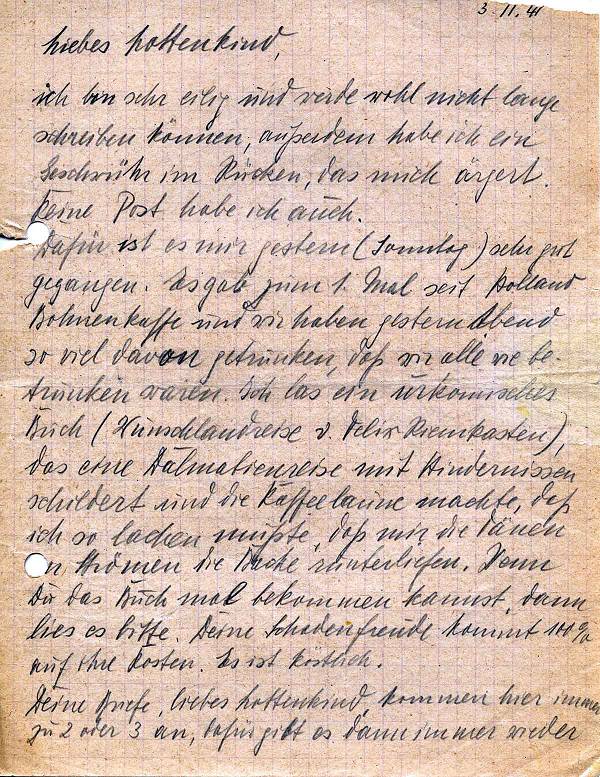 3.11.41
Liebes Lottenkind,
ich bin sehr eilig und werde wohl nicht lange
schreiben können, außerdem habe ich ein
Geschwühr im Rücken, das mich ärgert.
Keine Post habe ich auch.
Dafür ist es mir gestern (Sonntag) sehr gut
gegangen. Es gab zum 1. Mal seit Holland
Bohnenkaffe und wir haben gestern Abend
so viel davon getrunken, daß wir alle wie be-
trunken waren. Ich las ein urkomisches
Buch (Wunschlandreise v. Felix Riemkasten),
das eine Dalmatienreise mit Hindernissen
schildert und die Kaffeelaune machte, daß
ich so lachen mußte, daß mir die Tränen
in Strömen die Backe runterliefen. Wenn
Du das Buch mal bekommen kannst, dann
lies es bitte. Deine Schadenfreude kommt 100%
auf ihre Kosten. Es ist köstlich.
Deine Briefe, liebes Lottenkind, kommen hier immer
zu 2 oder 3 an, dafür gibt es dann immer wieder